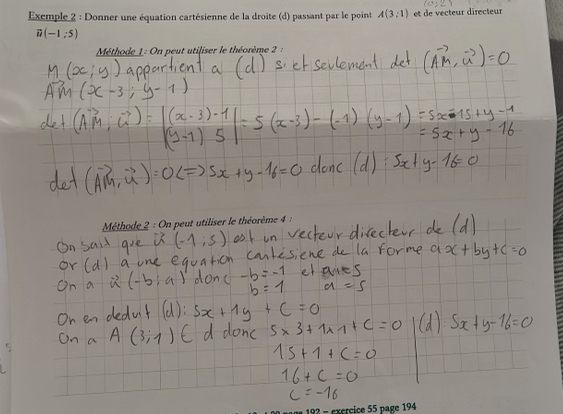 Exemple 2 : Donner une équation cartésienne de la droite (d) passant par le point A(3 ; 1) et de vecteur directeur
u⃗(−1 ; 5)
Méthode 1 : On peut utiliser le théorème 2 :
M (x ; y) appartient a (d) si et seulement det (AM⃗, u⃗) = 0
AM⃗ (x - 3 ; y - 1)
det (AM⃗, u⃗) = |(x-3) -1| = 5 (x-3) - (-1) (y-1) = 5x - 15 + y - 1
|(y-1) 5| = 5x + y - 16
det (AM⃗, u⃗) = 0 <=> 5x + y - 16 = 0 donc (d) : 5x + y - 16 = 0
Méthode 2 : On peut utiliser le théorème 4 :
On sait que u⃗ (-1 ; 5) est un vecteur directeur de (d)
Or (d) a une equation cartésiene de la forme ax + by + c = 0
On a u⃗ (-b ; a) donc -b = -1 et
b = 1 a = 5
On en deduit (d) : 5x + 1y + C = 0
On a A (3 ; 1) ∈ d donc 5 x 3 + 1 x 1 + C = 0 (d) : 5x + y - 16 = 0
15 + 1 + C = 0
16 + C = 0
C = -16
page 192 – exercice 55 page 194